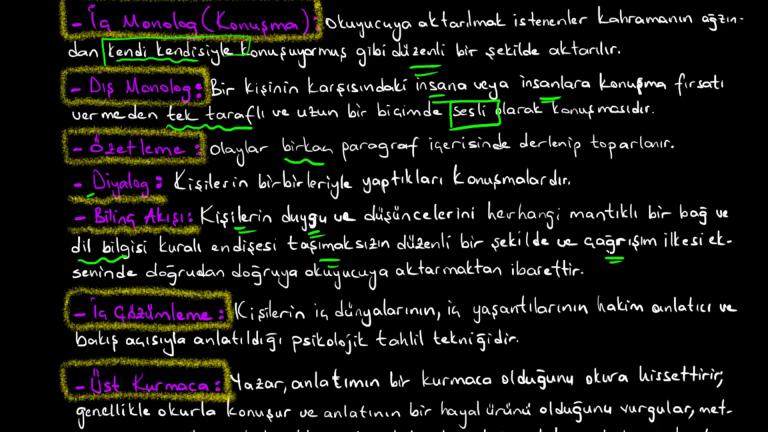 - İç Monolog (Konuşma): Okuyucuya aktarılmak istenenler kahramanın ağzın-
dan kendi kendisiyle konuşuyormuş gibi düzenli bir şekilde aktarılır.
- Dış Monolog: Bir kişinin karşısındaki insana veya insanlara konuşma fırsatı
vermeden tek taraflı ve uzun bir biçimde sesli olarak konuşmasıdır.
- Özetleme: Olaylar birkaç paragraf içerisinde derlenip toparlanır.
- Diyalog: Kişilerin birbirleriyle yaptıkları konuşmalardır.
- Bilinç Akışı: Kişilerin duygu ve düşüncelerini herhangi mantıklı bir bağ ve
dil bilgisi kuralı endişesi taşımaksızın düzenli bir şekilde ve çağrışım ilkesi ek-
seninde doğrudan doğruya okuyucuya aktarmaktan ibarettir.
- İç Çözümleme: Kişilerin iç dünyalarının, iç yaşantılarının hakim anlatıcı ve
bakış açısıyla anlatıldığı psikolojik tahlil tekniğidir.
- Üst Kurmaca: Yazar, anlatımın bir kurmaca olduğunu okura hissettirir,
genellikle okurla konuşur ve anlatının bir hayal ürünü olduğunu vurgular, met-